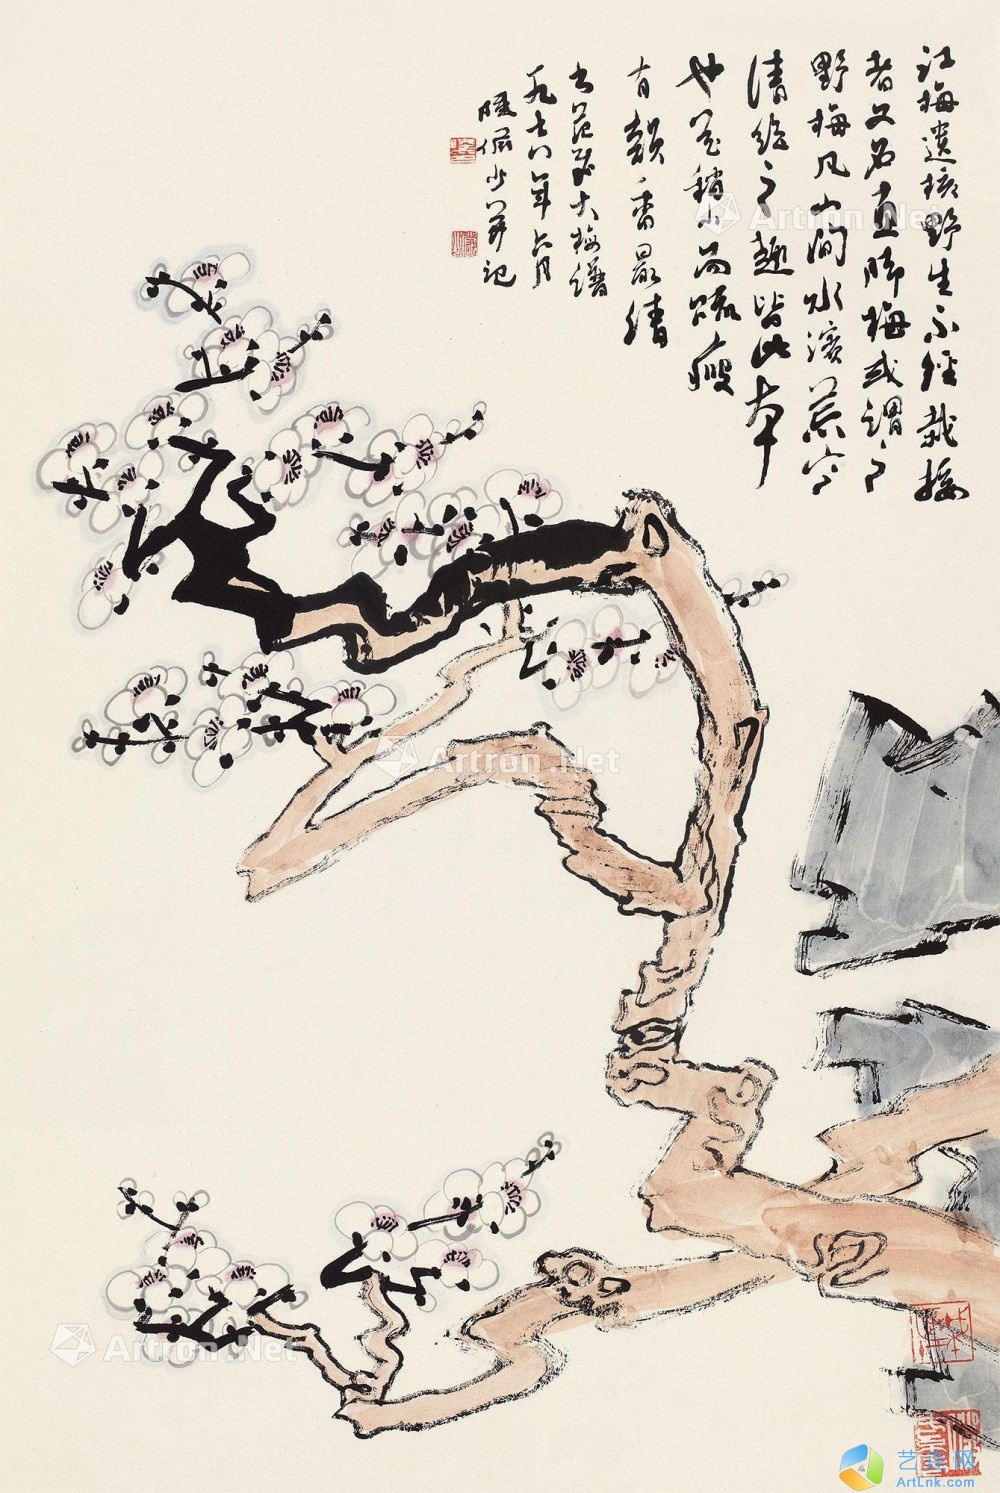 江梅遺核野生不經栽接
者又名直脚梅或謂之
野梅凡山間水濱荒寒
清絕之趣皆此本
也花稍小而疏瘦
有韻香最清
書范成大梅譜
一九七八年六月
陸儼少並記
Artron.Net
Artron.Net
Artron.Net
ArtLnk.com